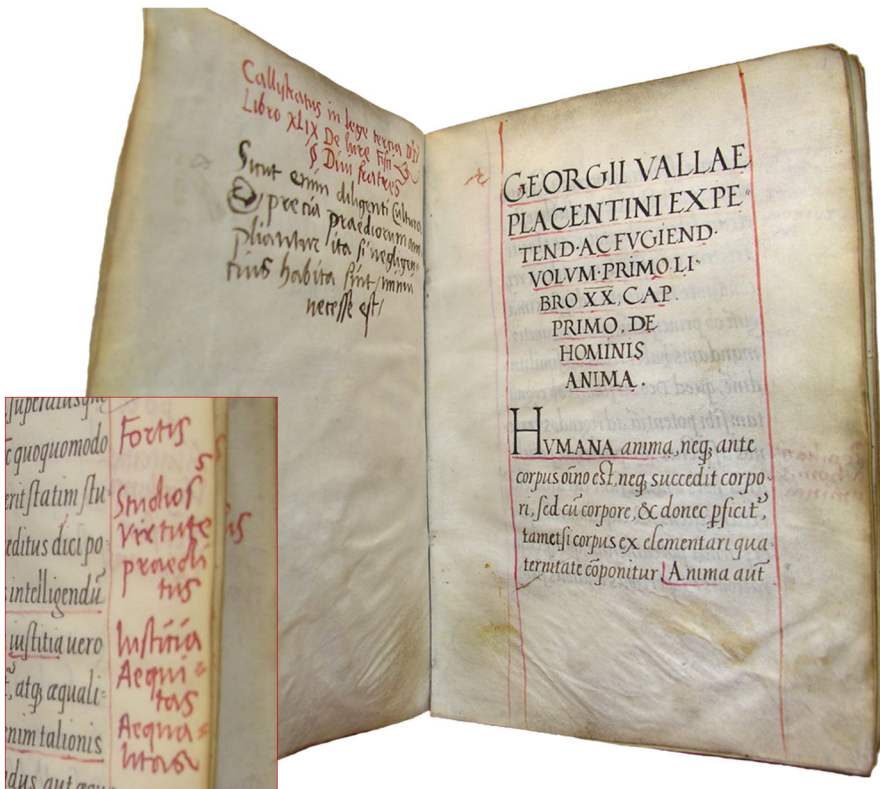 Callystratus in lege tertia
Libro XLIX De Iure Fisci
§ Divi fratres
Sicut enim diligenti cultura
praediorum
pliantur / ita si negligen
tius habita sint /
necesse est /
GEORGII VALLAE
PLACENTINI EXPE
TEND·AC FVGIEND·
VOLVM·PRIMO LI·
BRO XX, CAP.
PRIMO, DE
HOMINIS
ANIMA.
HVMANA anima, neq; ante
corpus oĩno est, neq; succedit corpo·
ri, sed cũ corpore, & donec pficit̃,
tametsi corpus ex elementari qua·
ternitate cõponitur. Anima aũt
quoquomodo
erit statim stu·
editus dici po·
intelligendũ
iustitia uero
, atq; æquali·
enim talionis
Fortis
Studios
Virtute
praedi
tus
Iustitia
Aequi=
tas
Aequa=
litas